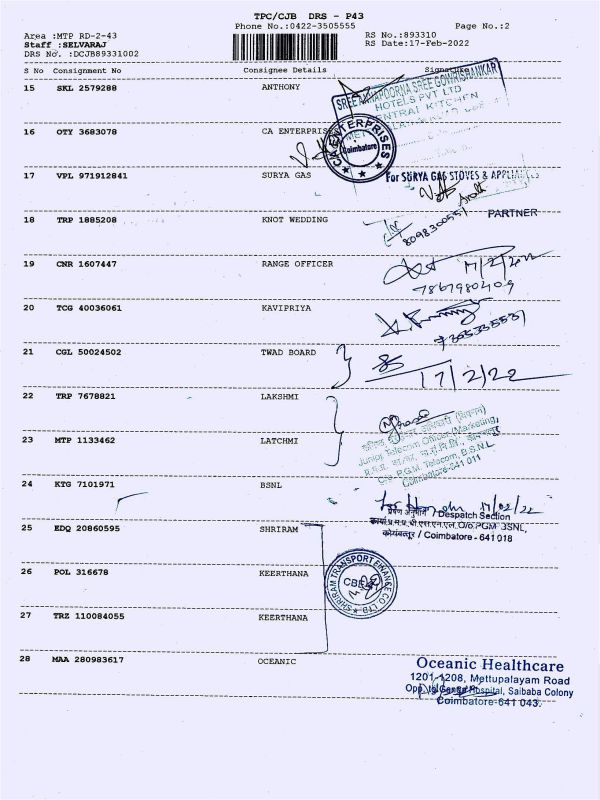 TPC/CJB DRS - P43
Phone No.:0422-3505555
Page No.:2
Area :MTP RD-2-43
RS No.:893310
Staff :SELVARAJ
RS Date:17-Feb-2022
DRS No. :DCJB89331002
S No Consignment No Consignee Details Signature
15 SKL 2579288 ANTHONY
SREE ANNAPOORNA SREE GOWRISHANKAR
HOTELS PVT LTD
CENTRAL KITCHEN
16 OTY 3683078 CA ENTERPRISES
CA ENTERPRISES
Coimbatore
17 VPL 971912841 SURYA GAS
For SURYA GAS STOVES & APPLIANCES
PARTNER
18 TRP 1885208 KNOT WEDDING
8098300557
19 CNR 1607447 RANGE OFFICER
17/2/2022
7867980409
20 TCG 40036061 KAVIPRIYA
21 CGL 50024502 TWAD BOARD
17/2/22
22 TRP 7678821 LAKSHMI
23 MTP 1133462 LATCHMI
Junior Telecom Officer (Marketing)
O/o. P.G.M. Telecom, B.S.N.L
Coimbatore-641 011
24 KTG 7101971 BSNL
17/02/22
Despatch Section
O/o.PGM BSNL,
कोयंबत्तूर / Coimbatore - 641 018
25 EDQ 20860595 SHRIRAM
26 POL 316678 KEERTHANA
SHRIRAM TRANSPORT FINANCE CO LTD
CBE
27 TRZ 110084055 KEERTHANA
28 MAA 280983617 OCEANIC
Oceanic Healthcare
1201-1208, Mettupalayam Road
Opp. to Ganga Hospital, Saibaba Colony
Coimbatore-641 043.